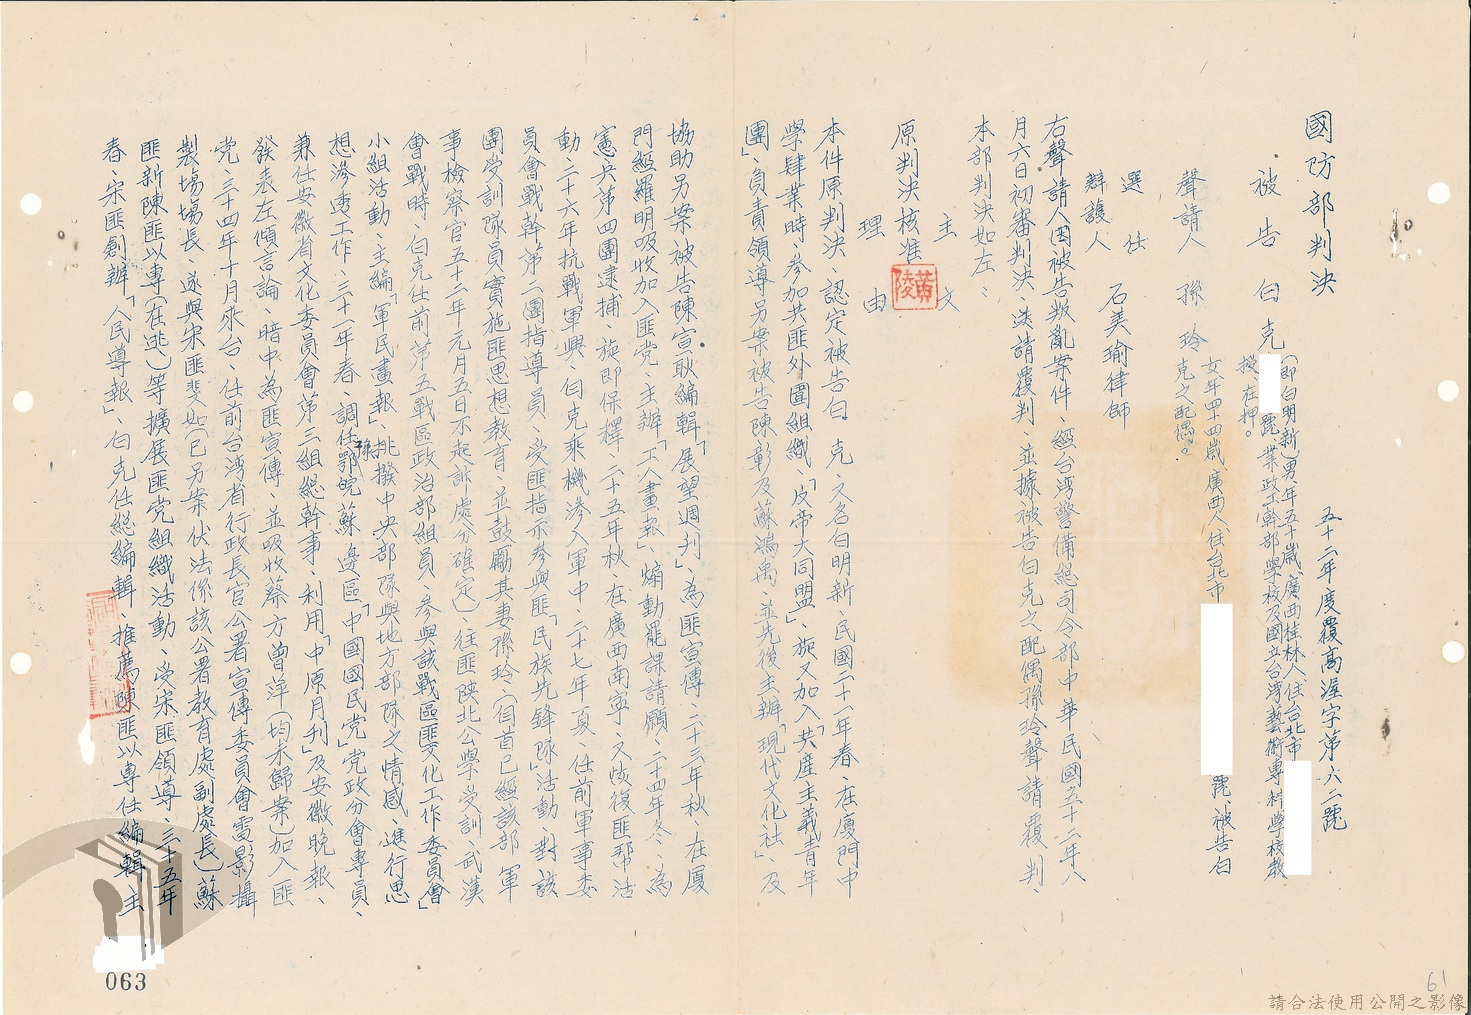 國防部判決
五十二年度覆高渥字第六二號
被告 白克(即白明新)男年五十歲、廣西桂林人、住台北市
號業政工幹部學校及國立台湾藝術專科學校教
授、在押。
聲請人 孫玲 女年四十四歲廣西人住台北市 號、被告白
克之配偶。
選任
辯護人 石美瑜律師
右聲請人因被告叛亂案件、經台湾警備總司令部中華民國五十二年八
月六日初審判決、送請覆判、並據被告白克之配偶孫玲聲請覆判
本部判決如左:
主文
原判決核准
黃陵
理由
本件原判決、認定被告白克、又名白明新、民國二十一年春、在廈門中
學肆業時、参加共匪外圍組織「反帝大同盟」、旋又加入「共產主義青年
團」、負責領導另案被告陳彰及蘇鴻禹、並先後主辦「現代文化社」、及
協助另案被告陳宣耿編輯「展望週刊」、為匪宣傳、二十三年秋、在厦
門經羅明吸收加入匪党、主辦「工人畫報」、煽動罷課請願、二十四年冬、為
憲兵第四團逮捕、旋即保釋、二十五年秋、在廣西南寧、又恢復匪幫活
動、二十六年抗戰軍興、白克乘機滲入軍中、二十七年夏、任前軍事委
員會戰幹第二團指導員、受匪指示参與匪「民族先鋒隊」活動、對該
團受訓隊員實施匪思想教育、並鼓勵其妻孫玲、(自首已經該部軍
事檢察官五十二年元月五日不起訴處分確定)、往匪陝北公學受訓、武漢
會戰時、白克任前第五戰區政治部組員、参與該戰區匪文化工作委員會「
小組活動、主編「軍民畫報」、挑撥中央部隊與地方部隊之情感、進行思
想滲透工作、三十一年春、調任鄂豫皖蘇邊區「中國國民党」党政分會專員、
兼任安徽省文化委員會第三組總幹事、利用「中原月刋」及安徽晚報、
發表左傾言論、暗中為匪宣傳、並吸收蔡方曾萍(均未歸案)加入匪
党、三十四年十月來台、任前台湾省行政長官公署宣傳委員會電影攝
製場場長、遂與宋匪斐如(已另案伏法係該公署教育處副處長)蘇
匪新陳匪以專(在逃)等擴展匪党組織活動、受宋匪領導、三十五年
春、宋匪創辦「人民導報」、白克任總編輯、推薦陳匪以專任編輯主
063
61
請合法使用公開之影像